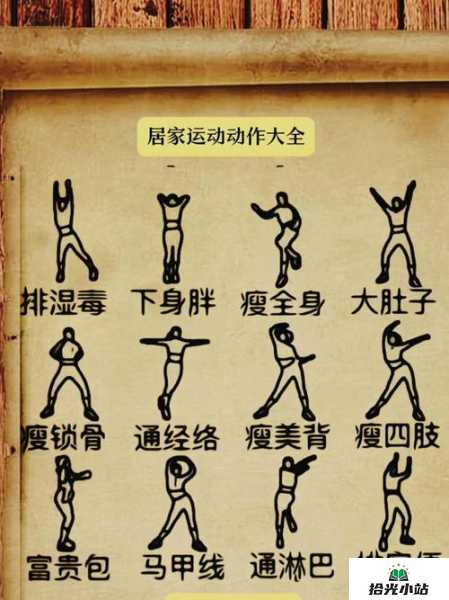 居家运动动作大全
排湿毒 下身胖 瘦全身 大肚子
瘦锁骨 通经络 瘦美背 瘦四肢
富贵包 马甲线 通淋巴
拾光小站